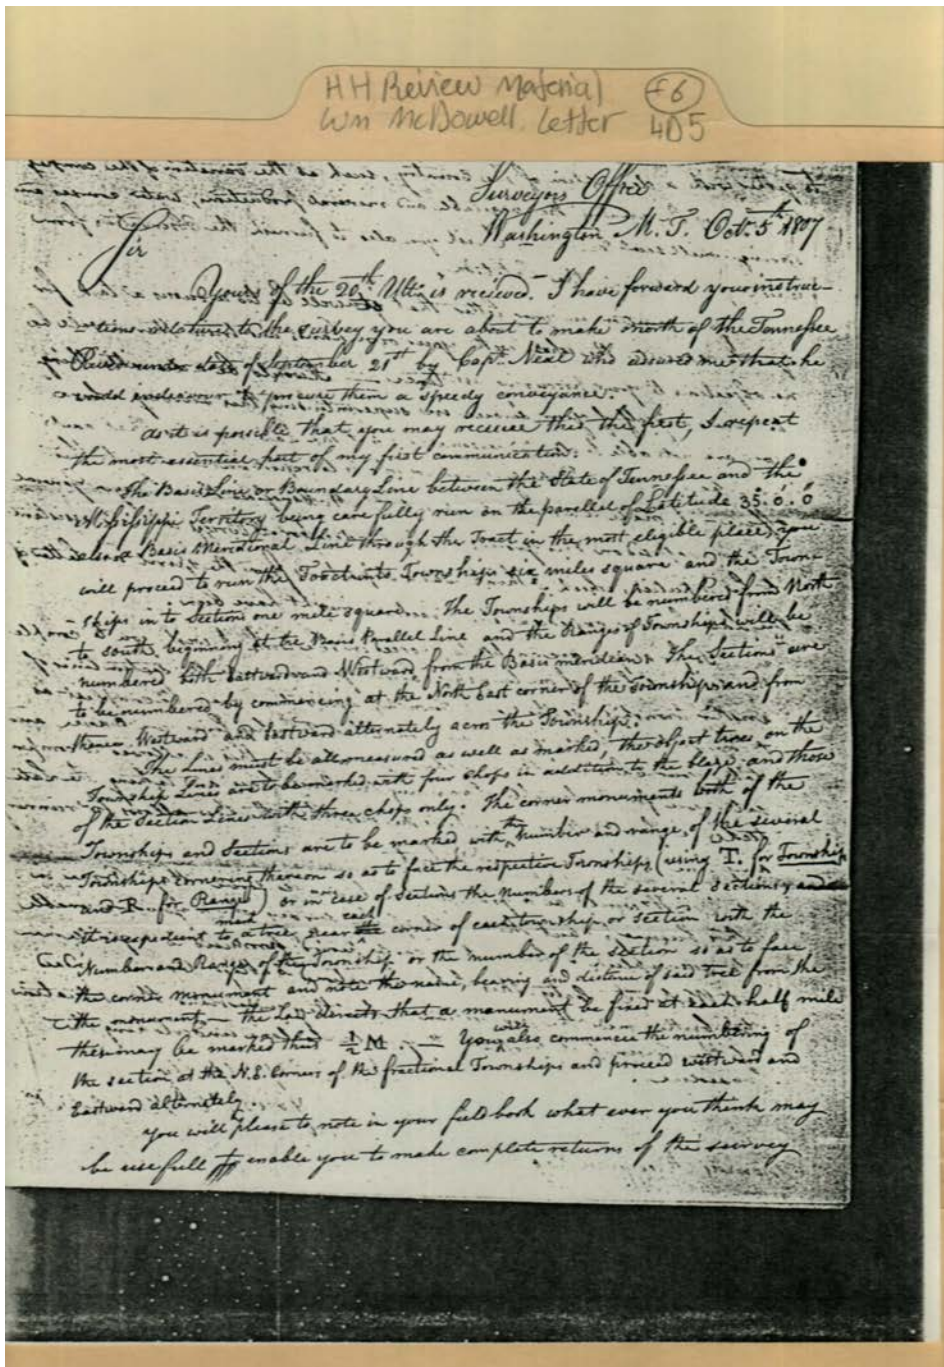 HH Review Material F6
Wm McDowell Letter 4D5
Surveyors Office
Washington M. T. Oct. 5th 1807
Sir
Yours of the 20th Ulto is recieved. I have forward your instruc-
tions relative to the survey you are about to make north of the Tennessee
River under date of September 21st by Capt. Neal who assured me that he
would endeavour to procure them a speedy conveyance.
As it is possible that you may receive this the first, I repeat
the most essential part of my first communication:
The Basis Line or Boundary Line between the State of Tennessee and the
Mississippi Territory being carefully run on the parallel of Latitude 35.0.0
also a Basis Meridional Line through the Tract in the most eligible place, you
will proceed to run the Townships six miles square and the Town-
ships in to Sections one mile square. The Townships will be numbered from North
to south, beginning at the Basis Parallel Line and the Ranges of Townships will be
numbered both Eastward and Westward from the Basis meridian. The Sections are
to be numbered by commencing at the North East corner of the Townships and from
thence Westward and Eastward alternately across the Township.
The Lines must be all measured as well as marked, the object trees on the
Township Lines are to be marked with four chops in addition to the blaze and those
of the Section Lines with three chops only. The corner monuments both of the
Townships and Sections are to be marked with the Number and range of the several
Townships cornering thereon so as to face the respective Townships (using T. for Township
and R. for Range) or in case of Sections the Numbers of the several sections, and
it is expedient to mark a tree near each corner of each township or section with the
Number and Range of the Township or the number of the section so as to face
the corner monument and note the name, bearing and distance of said tree from the
the monument — the Law directs that a monument be fixed at each half mile
these may be marked thus ½ M. — You will also commence the numbering of
the section at the N.E. Corners of the fractional Townships and proceed westward and
Eastward alternately.
You will please to note in your field book what ever you think may
be usefull to enable you to make complete returns of the survey